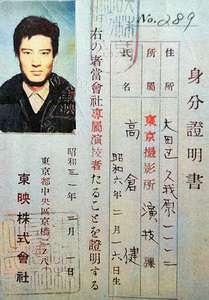 No. 289
身分證明書
住所 大田区久我原一一二
所屬 東京撮影所 演技課
氏名 高倉健
昭和六年二月一六日生
右の者當會社專屬演技者たることを證明する
昭和三一年二月一日
東京都中央区京橋二ノ八
東映株式會社